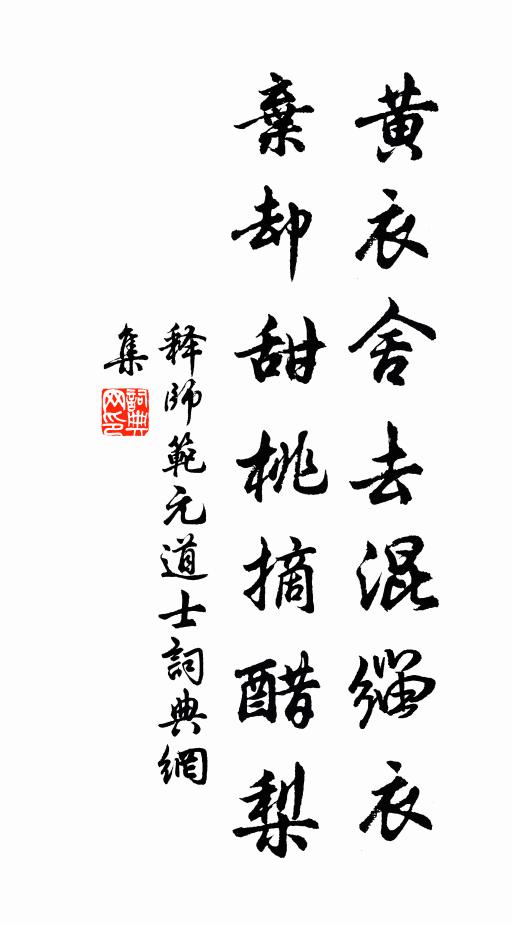 黄衣舍去混缁衣
棄却甜桃摘醋梨
释師範元道士詞典網
集
詞典
网印